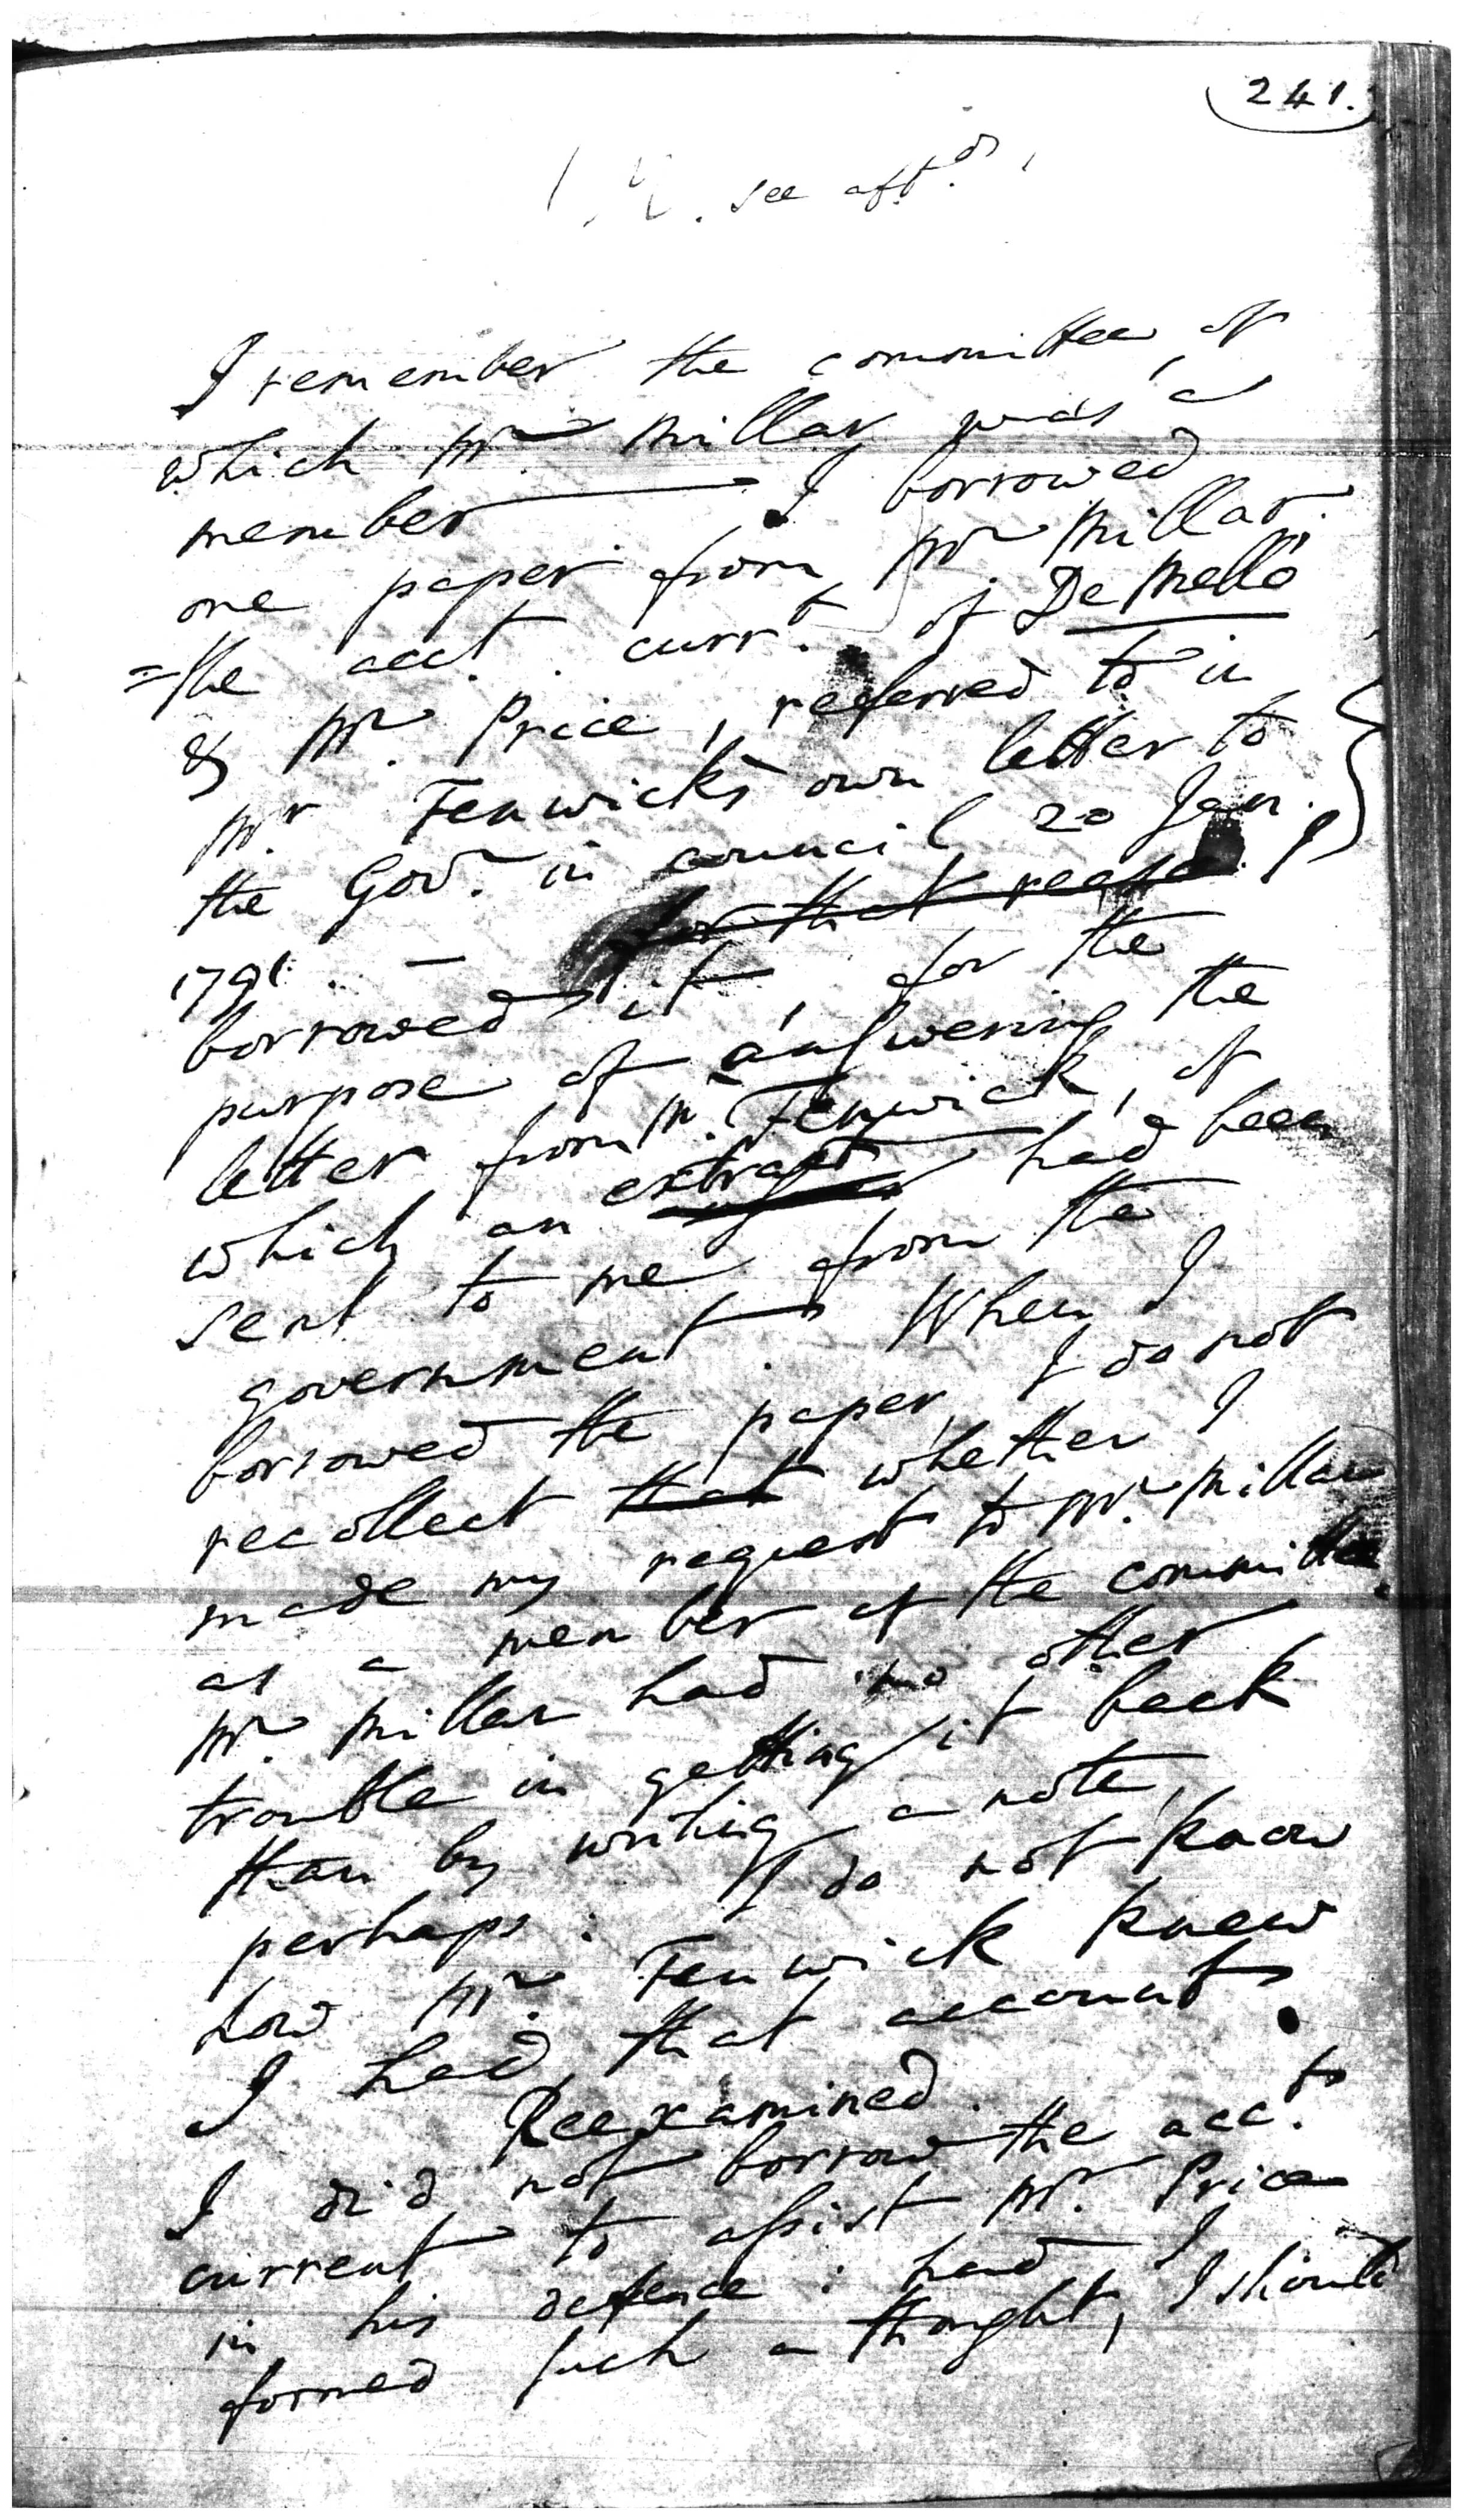 241.
see aft.d
I remember the committee, of
which Mr. Millar was a
member — I borrowed
one paper from Mr. Millar.
= the acct. curr.t of De Mello
& Mr. Price, referred to in
Mr. Fenwick's own letter to
the Gov.r in council 20 Jan.
1791. — for that reaso I
borrowed it, for the
purpose of answering the
letter from Mr. Fenwick, of
which an extract had been
sent to me from the
government. When I
borrowed the paper, I do not
recollect that whether I
made my request to Mr. Millar
as a member of the committee.
Mr. Millar had no other
trouble in getting it back
than by writing a note,
perhaps: I do not know
how Mr. Fenwick knew
I had that account.
Reexamined.
I did not borrow the acc.t
current to assist Mr. Price
in his defence: had I
formed such a thought, I should